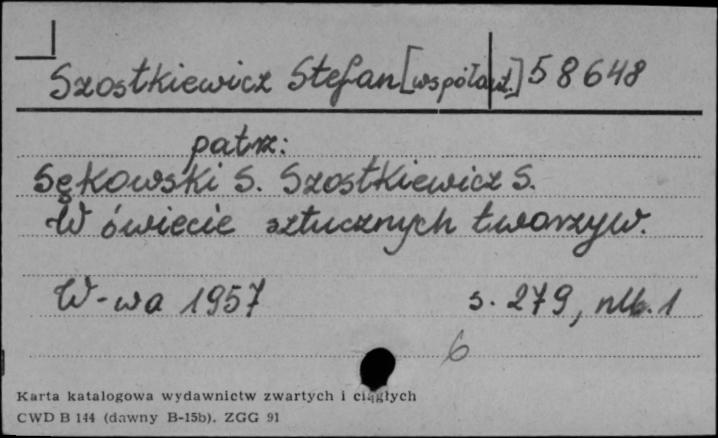 Szostkiewicz Stefan [współaut.] 58648
patrz:
Sękowski S. Szostkiewicz S.
W świecie sztucznych tworzyw.
W-wa 1957 s. 279, nlb. 1
6
Karta katalogowa wydawnictw zwartych i ciągłych
CWD B 144 (dawny B-15b). ZGG 91